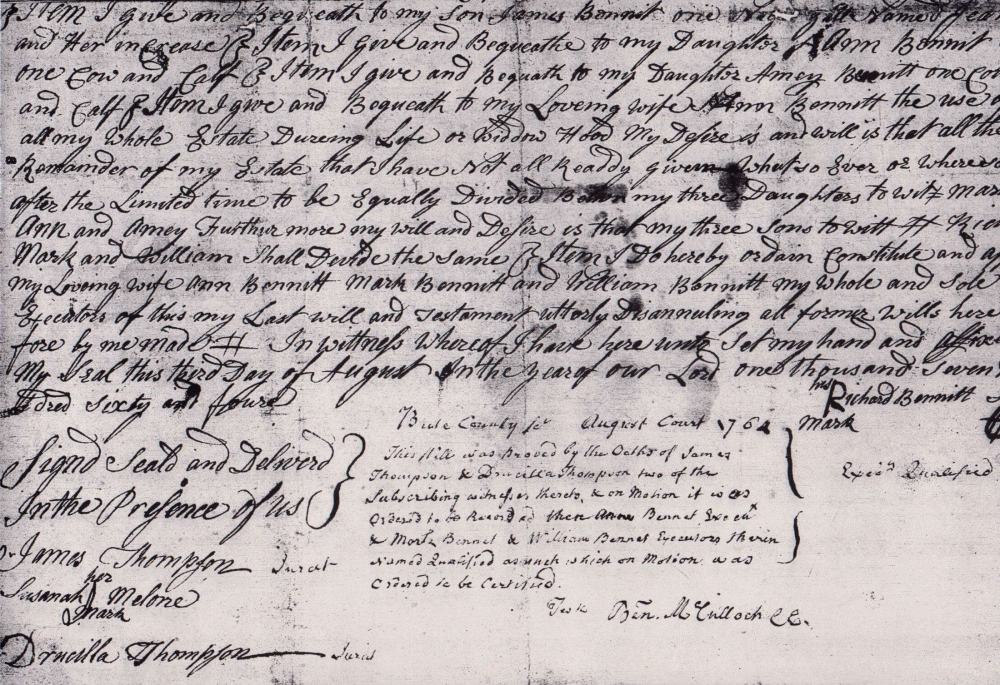 Item I give and Bequeath to my Son James Bennit one Negro named
and Her increase & Item I give and Bequeathe to my Daughter Ann Bennit
one Cow and Calf & Item I give and Bequath to my Daughter Amey Bennitt one Cow
and Calf & Item I give and Bequeath to my Loveing wife Ann Bennett the use
all my Whole Estate Dureing Life or Widdow Hood My Desire is and will is that all the
Remainder of my Estate that I have Not all Readdy given What so Ever or
after the Limited time to be Equally Divided my three Daughters to wit
Ann and Amey Furthur more my will and Desire is that my three Sons to Witt
Mark and William Shall Divide the Same & Item I Do hereby ordain Constitute and
My Loveing wife Ann Bennitt Mark Bennitt and William Bennitt my Whole and Sole
Executors of this my Last will and Testament utterly Disannuling all former Wills here
fore by me made In Witness Whereof I have here unto Set my hand and
My Seal this third Day of August In the year of our Lord one thousand Seven
dred Sixty and foure
his
Richard Bennitt
Mark
Signd Seald and Deliverd
In the Presence of us
James Thompson Jurat
her
Susanah Melone
Mark
Drucilla Thompson Jurat
Bute County August Court 1764
This Will was proved by the Oaths of James
Thompson & Drucilla Thompson two of the
Subscribing witnesses thereto, & on Motion it was
Ordered to be Recorded then Anne Bennet
& Mark Bennet & William Bennet Executors therin
Named Qualified as such which on Motion was
Ordered to be Certified.
Test Ben. McCulloch CC.
Exors Qualified